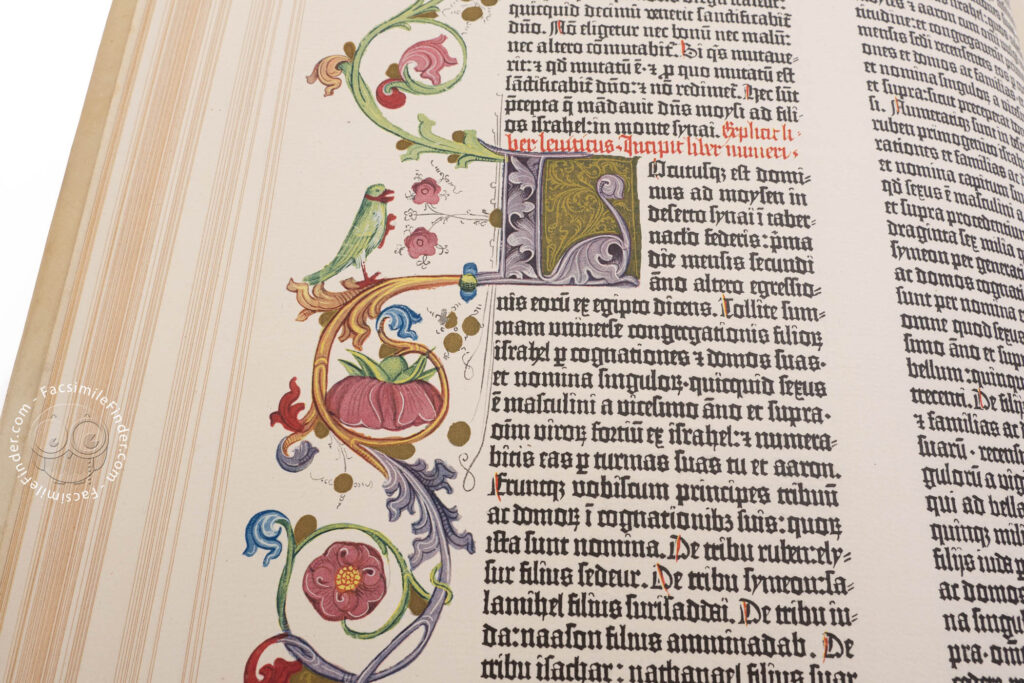 quicquid decimū venerit sanctificabit̄
dn̄o. Nō eligetur nec bonū nec malū:
nec altero cōmutabit̄. Si q̄s mutaue-
rit: et qđ mutatū ē· et p̱ quo mutatū est
sāctificabit̄ dn̄o: et nō redimet̄. Hec sūt
p̄cepta q̄ mādauit dn̄s moysi ad fili-
os israhel: in monte synai. Explicit li-
ber leuiticus. Incipit liber numeri.
Locutusqꝫ est domi-
nus ad moysen in
deserto synai ī taber-
nac̄lo federis: p̄ma
die mensis secundi
āno altero egressio-
nis eorū ex egipto dicens. Tollite sum-
mam vniuerse congregationis filioꝝ
israhel p̱ cognationes et domos suas·
et nomina singuloꝝ· quicquid sexus
ē masculini a vicesimo āno et supra·
oīm viroꝝ fortiū ex israhel: et numera-
bitis eas p̱ turmas suas tu et aaron.
Eruntqꝫ vobiscum principes tribuū
ac domoꝝ ī cognationibꝫ suis: quoꝝ
ista sunt nomina. De tribu ruben: ely-
sur filius sedeur. De tribu symeon: sa-
lamihel filius surisaddai. De tribu iu-
da: naason filius amminadab. De
tribu isachar: nathanael filius suar
mensis sc̄di recensentes eos
ones et domos ac familias
et nomina singuloꝝ a vices
et supra: sicut preceperat
si. Numeratiqꝫ sunt in deser
ruben primogenito israhel
rationes et familias ac
et nomina capitum sin
qđ sexus ē masculini
et supra procedentiū
draginta sex milia
symeon per generati
ac domos cognati
sunt per nomina
omne quod sexus
simo āno et sup
bellum: quinqu
trecenti. De filijs
et familias ac
suarū· recensi
gulorū a vig
qui ad bella
quinqꝫ mili
filijs iuda p
ac domos
na singul
pra· om̄
FacsimileFinder.com - FacsimileFinder.com - FacsimileFinder.com